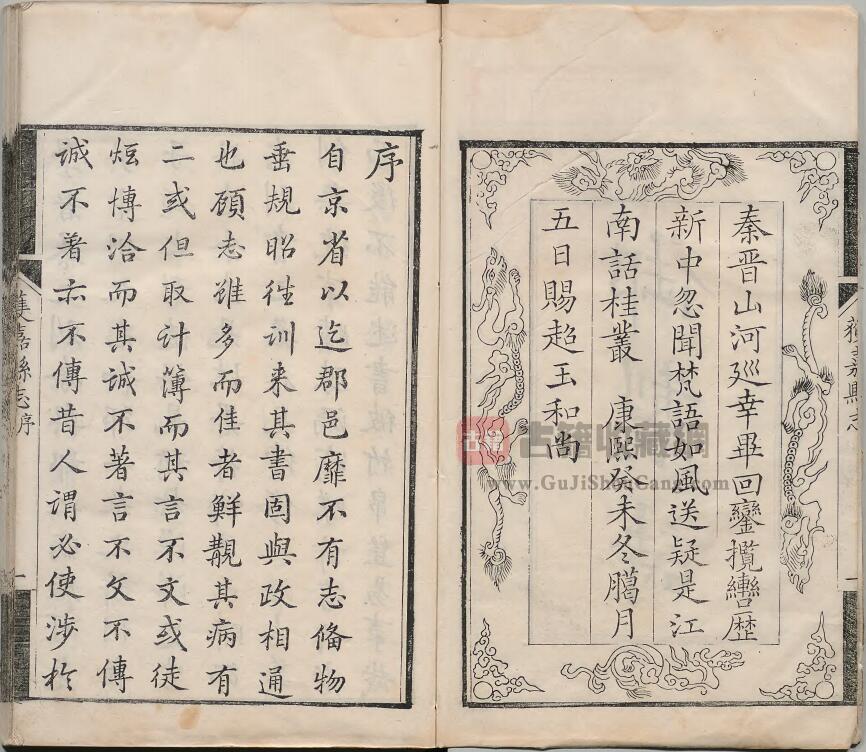 秦晋山河廵幸畢回鑾攬轡歷
新中忽聞梵語如風送疑是江
南話桂叢　康熙癸未冬臈月
五日賜超玉和尚
獲嘉縣志
序
自京省以迄郡邑靡不有志備物
垂規昭徃訓来其書固與政相通
也頋志雖多而佳者鮮覯其病有
二或但取计薄而其言不文或徒
炫博洽而其誠不著言不文不傳
誠不著亦不傳昔人謂必使涉於
獲嘉縣志序
一
古籍收藏網
www.GuJiShouCang.com